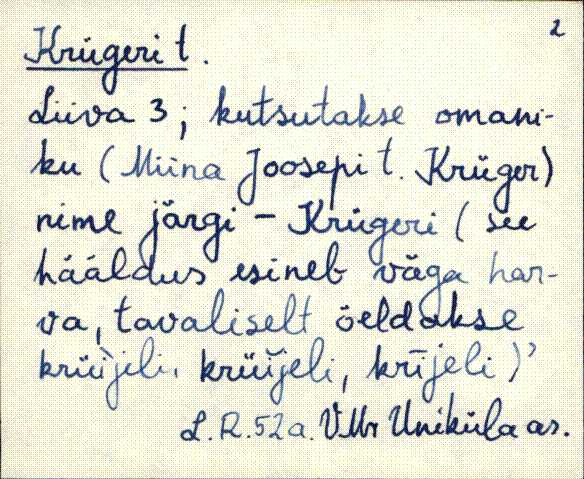 2
Krügeri t.
Liiva 3; kutsutakse omani-
ku (Miina Joosepi t. Krüger)
nime järgi – Krügeri (see
hääldus esineb väga har-
va, tavaliselt öeldakse
krüüjeli, krüüjeli, krījeli)
L.R.52a. VMr Uniküla as.